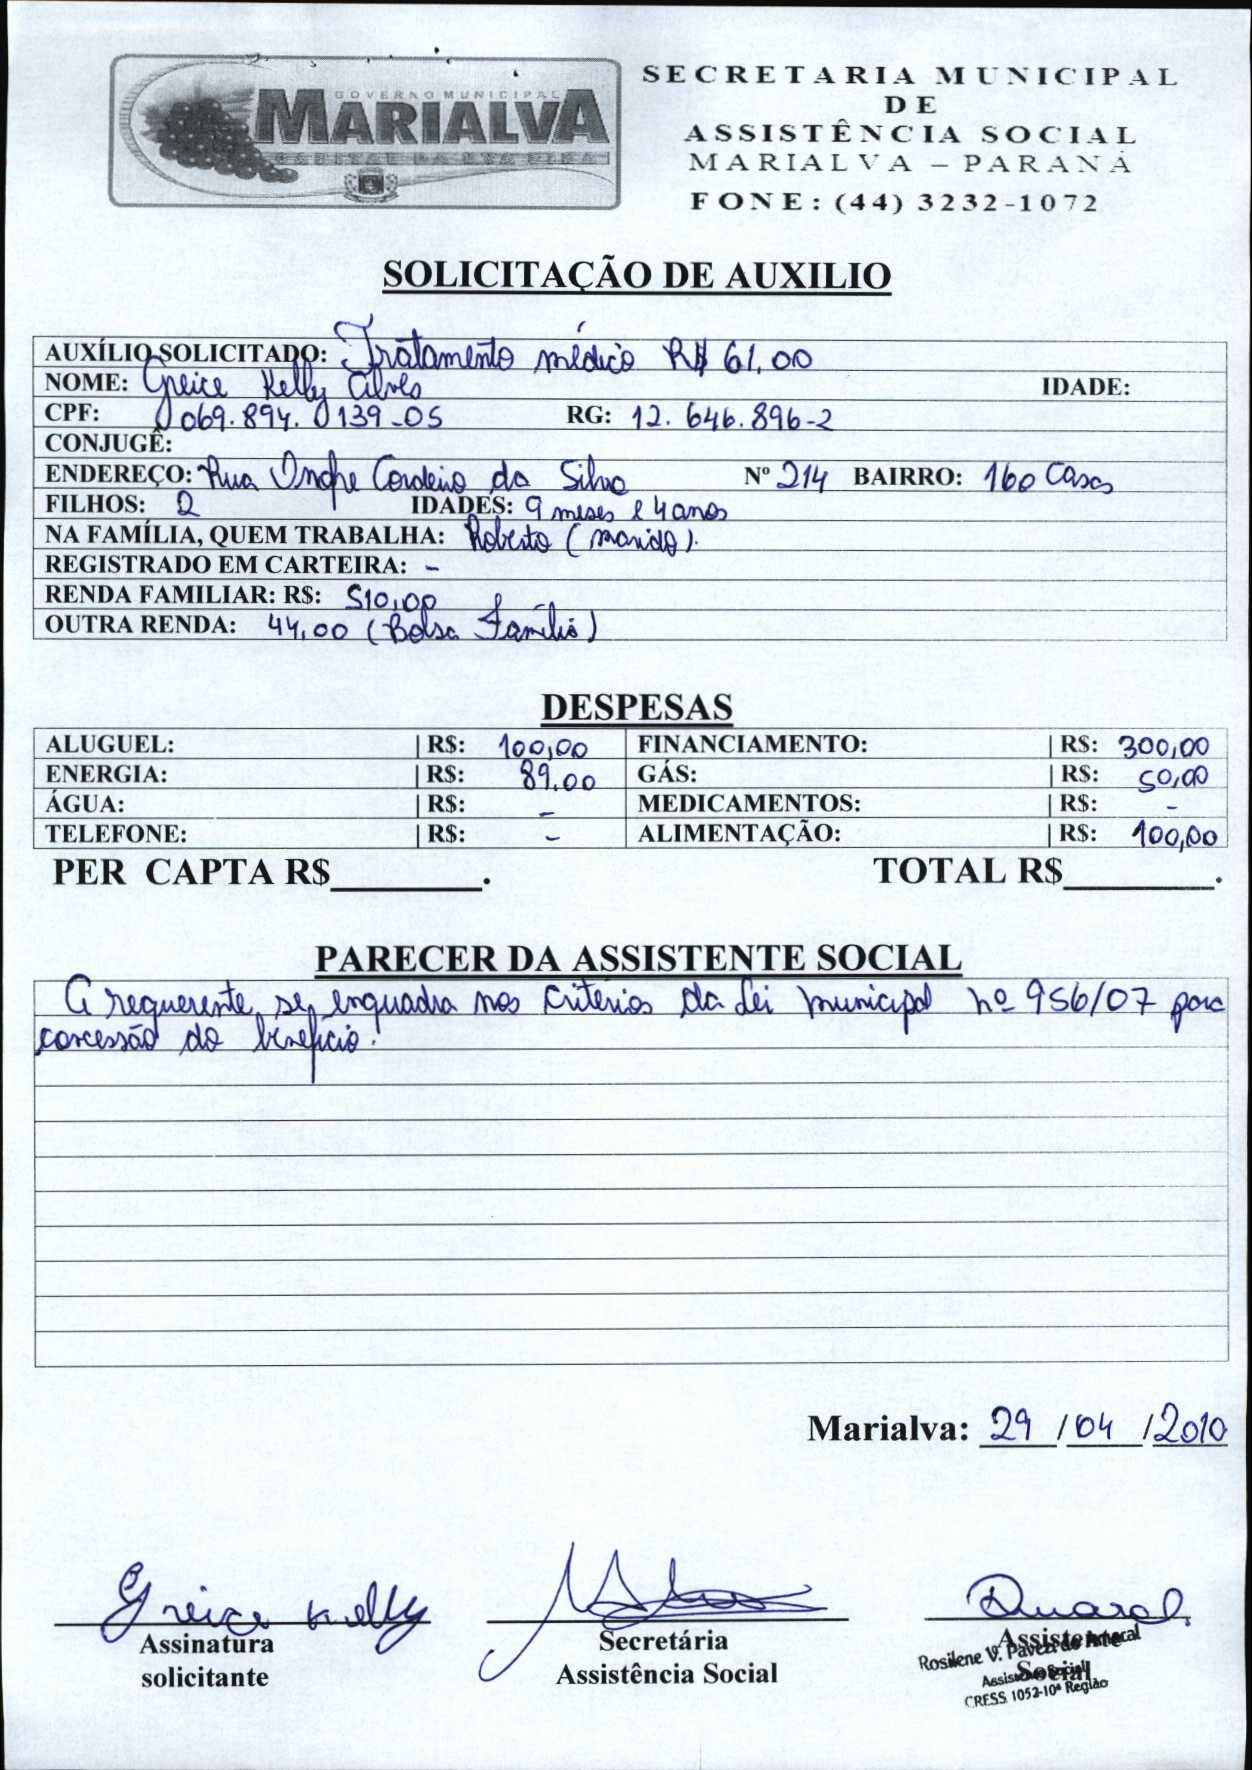 GOVERNO MUNICIPAL
MARIALVA
CAPITAL DA UVA FINA
SECRETARIA MUNICIPAL
DE
ASSISTÊNCIA SOCIAL
MARIALVA – PARANÁ
FONE: (44) 3232-1072
SOLICITAÇÃO DE AUXILIO
AUXÍLIO SOLICITADO: Tratamento médico R$ 61,00
NOME: Greice Kelly Alves IDADE:
CPF: 069.894.139-05 RG: 12.646.896-2
CONJUGÊ:
ENDEREÇO: Rua Cordeiro da Silva Nº 214 BAIRRO: 160 Casas
FILHOS: 2 IDADES: 9 meses e 4 anos
NA FAMÍLIA, QUEM TRABALHA: Roberto (marido).
REGISTRADO EM CARTEIRA: -
RENDA FAMILIAR: R$: 510,00
OUTRA RENDA: 44,00 (Bolsa Família)
DESPESAS
ALUGUEL: | R$: 100,00 FINANCIAMENTO: | R$: 300,00
ENERGIA: | R$: 89,00 GÁS: | R$: 50,00
ÁGUA: | R$: - MEDICAMENTOS: | R$: -
TELEFONE: | R$: - ALIMENTAÇÃO: | R$: 100,00
PER CAPTA R$________. TOTAL R$________.
PARECER DA ASSISTENTE SOCIAL
A requerente se enquadra nos critérios da Lei Municipal nº 956/07 para
concessão do benefício.
Marialva: 29 /04 /2010
Greice Kelly
Assinatura
solicitante
Secretária
Assistência Social
Assistente
Social
Rosilene V. Pavezi de Amaral
Assistente Social
CRESS 1052-10ª Região